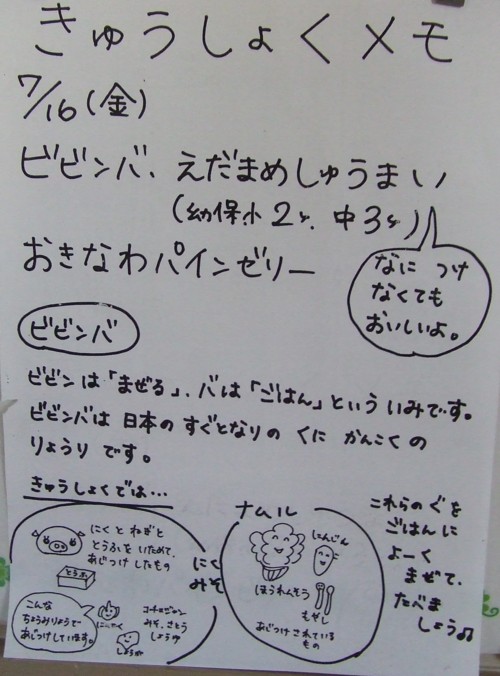 きゅうしょくメモ
7/16(金)
ビビンバ、えだまめしゅうまい
(幼保小2ヶ、中3ヶ)
おきなわパインゼリー
なに つけ
なくても
おいしいよ。
ビビンバ
ビビンは「まぜる」、バは「ごはん」という いみです。
ビビンバは 日本の すぐとなりの くに かんこくの
りょうり です。
きゅうしょくでは…
にくと ねぎと
とうふを いためて、
あじつけしたもの
とうふ
にく
みそ
こんな
ちょうみりょうで
あじつけしています。
にんにく
しょうが
コチュジャン
みそ、さとう
しょうゆ
ナムル
にんじん
ほうれんそう
もやし
あじつけされている
もの
これらの ぐを
ごはんに
よーく
まぜて、
たべま
しょう♫